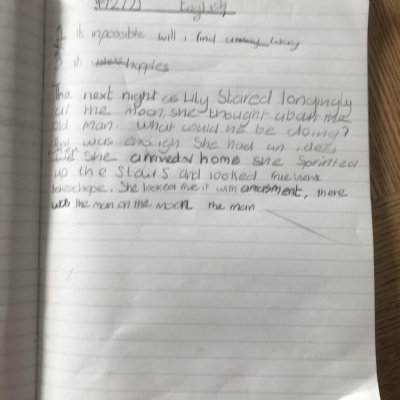 English
its inpossible will i find away
its happles
The next night as Lily stared longingly
at the moon, she thought about the
old man. What could he be doing?
was enough she had an idea
she arrived home she sprinted
up the stairs and looked
She looked it with amasment, there
was the man on the moon the man